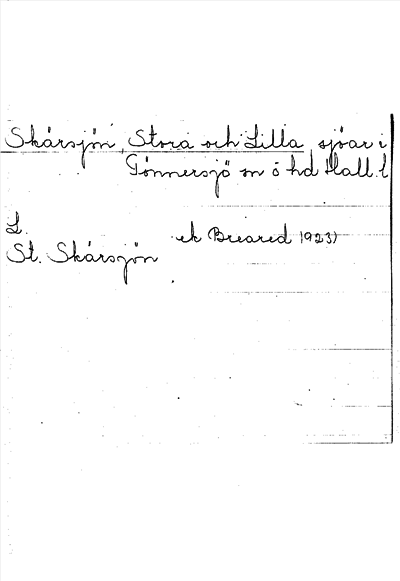 Skårsjön, Stora och Lilla, sjöar i
Gönnersjö sn ö hd Hall. l
L.
St. Skårsjön ek Breared 1923)